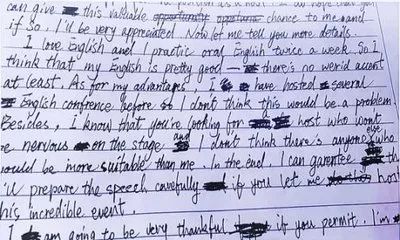 position as a host. I do hope that you
can give this valuable chance to me and
if so, I'll be very appreciated. Now let me tell you more details.
I love English and I practic oral English twice a week. So I
think that my English is pretty good — there's no weird accent
at least. As for my advantages, I have hosted several
English confrence before so I don't think this would be a problem.
Besides, I know that you're looking for host who won't
be nervous on the stage and I don't think there's anyone else who
would be more suitable than me. In the end, I can garentee th
'll prepare the speech carefully if you let me host
his incredible event.
I am going to be very thankful if you permit. I'm